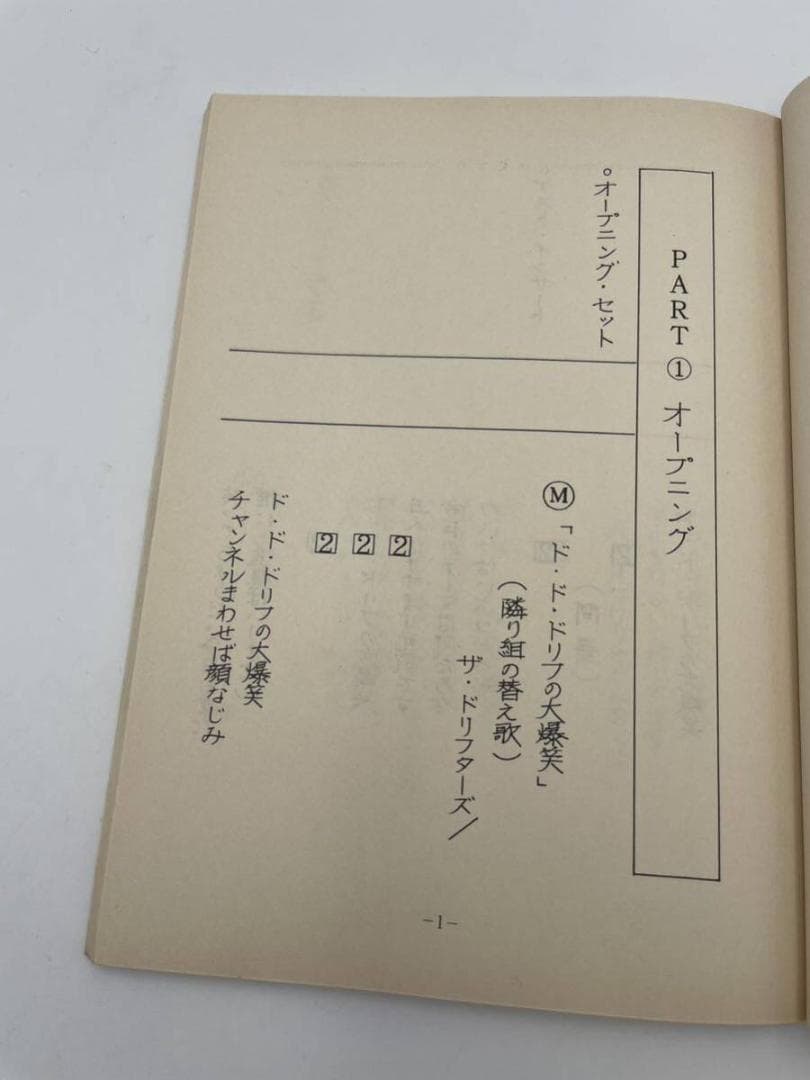 PART① オープニング
○オープニング・セット
Ⓜ「ド・ド・ドリフの大爆笑」
（隣り組の替え歌）
ザ・ドリフターズ／
2
2
2
ド・ド・ドリフの大爆笑
チャンネルまわせば顔なじみ
－1－